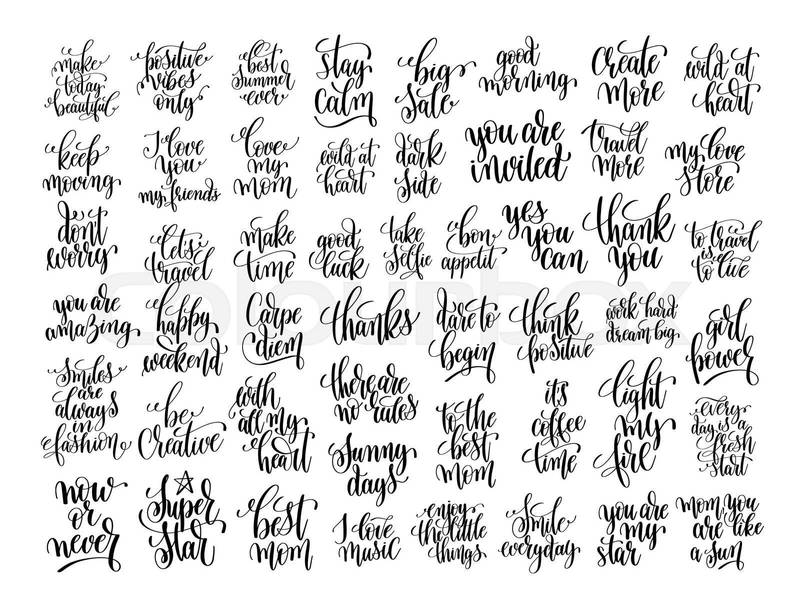 make
today
beautiful
positive
vibes
only
best
summer
ever
stay
calm
big
sale
good
morning
create
more
wild at
heart
keep
moving
I love
you
my friends
love
my
mom
wild at
heart
dark
side
you are
invited
travel
more
my love
store
don't
worry
let's
travel
make
time
good
luck
take
selfie
bon
appetit
yes
you
can
thank
you
to travel
is
to live
you are
amazing
happy
weekend
Carpe
diem
thanks
dare to
begin
think
positive
work hard
dream big
girl
power
Smiles
are
always
in
fashion
be
Creative
with
all my
heart
there are
no rules
to the
best
mom
it's
coffee
time
light
my
fire
every
day is a
fresh
start
Sunny
days
now
or
never
Super
Star
best
mom
I love
music
enjoy
the little
things
Smile
everyday
you are
my
star
mom, you
are like
a sun
colourbox